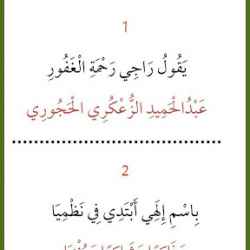 1
يَقُولُ رَاجِي رَحْمَةِ الْغَفُورِ
عَبْدُ الْحَمِيدِ الزُّعْكُرِي الْحَجُورِي
2
بِاسْمِ إِلَهِي أَبْتَدِي فِي نَظْمِيَا